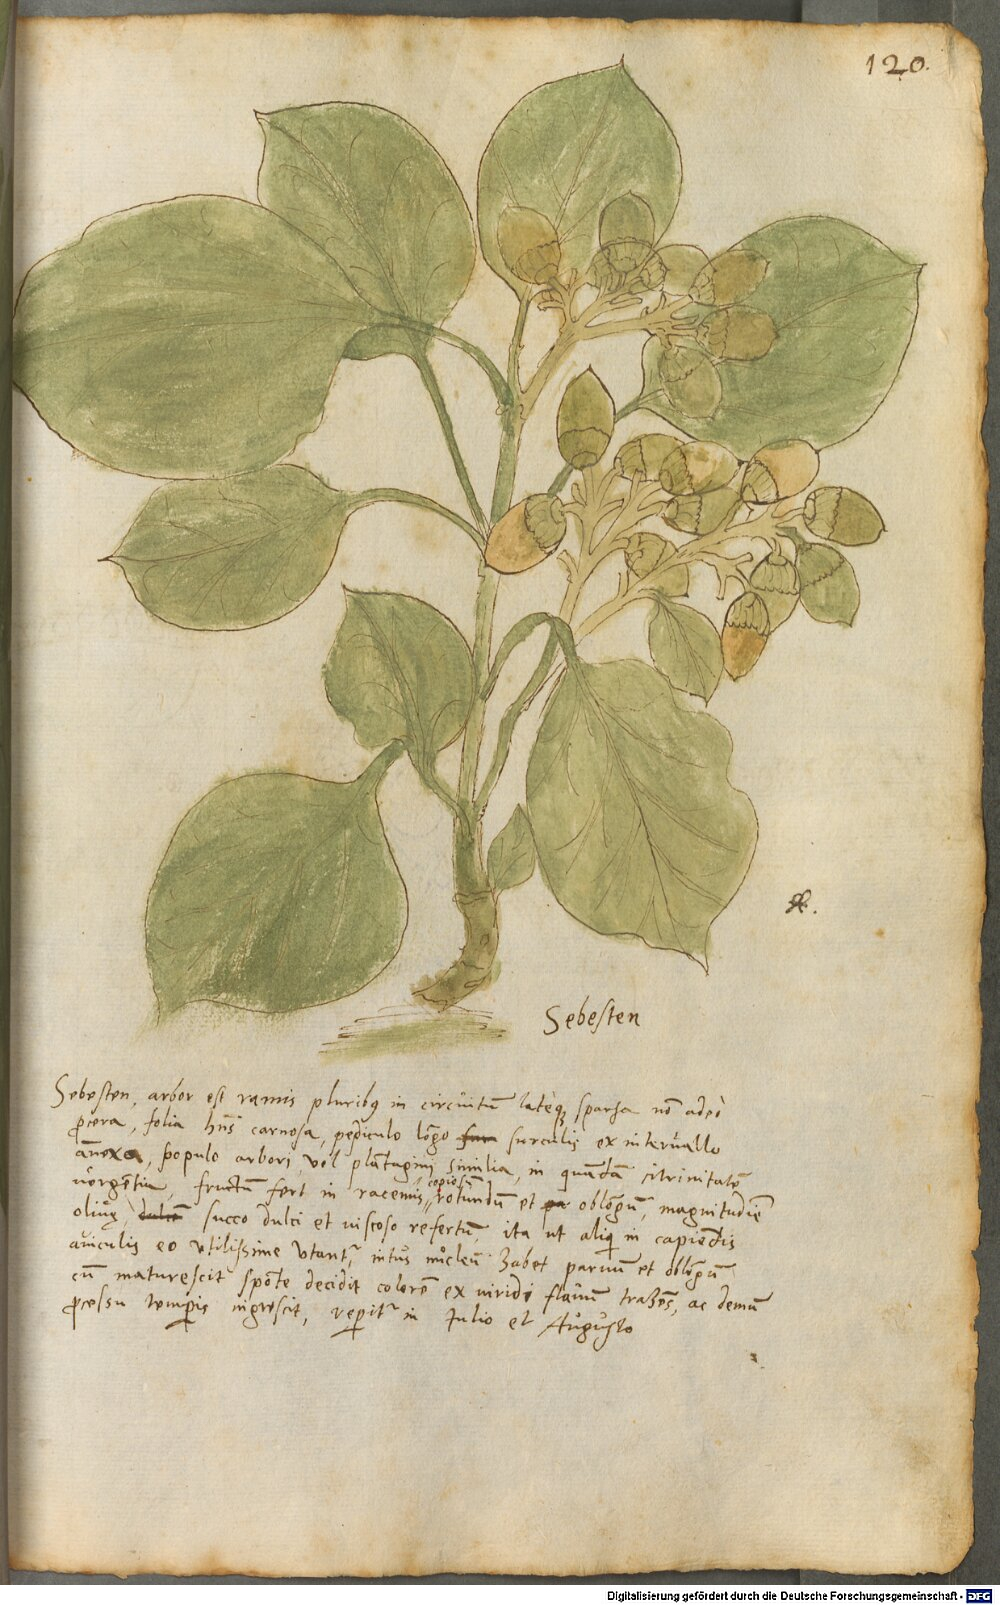 120.
Sebesten
Sebesten, arbor est ramis pluribꝰ in circuitũ lateqꝫ sparsa nõ adeò
ꝓcera, folia hñs carnosa, pediculo lõgo surculis ex interuallo
ãnexa, populo arbori, vel plãtagini similia, in quãdã citrinitatẽ
uergẽtia, fructũ fert in racemis, copiosũ rotundũ et oblõgũ, magnitudiẽ
oliuę, succo dulci et uiscoso refertũ, ita ut aliqi in capiendis
auiculis eo utilissime utantr, intus nucleũ habet paruũ et oblõgũ
cũ maturescit spõte decidit colorẽ ex uiridi flauũ trahẽs, ac demũ
ꝓcessu temꝑis nigrescit, reꝑitr in Iulio et Augusto
Digitalisierung gefördert durch die Deutsche Forschungsgemeinschaft - DFG